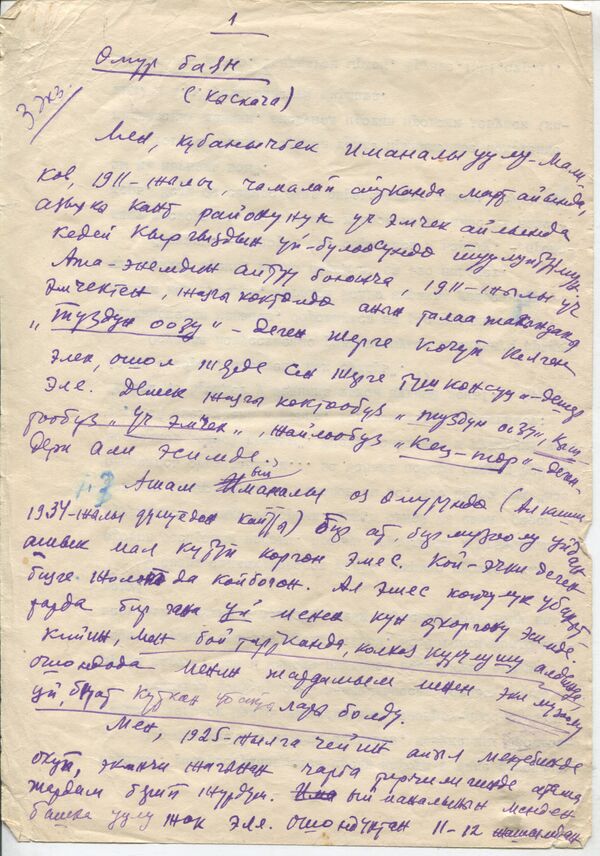 1
Өмүр баян
(Кыскача)
3 экз.
Мен, Кубанычбек Иманалы уулу-Мали-
ков, 1911-жылы, чамалай айтканда март айында,
азыркы Кант районунун Үч Эмчек айлында
кедей Кыргыздын үй-бүлөөсүндө туулуптурмун.
Ата-энемдин айтуу боюнча, 1911-жылы Үч
Эмчектен, жазгы көктөөдө анын талаа жагындагы
„Туздун оозу" – деген жерге көчүп келген
элек, ошол жерде сен жерге түшкөнсүң – дешер
эле. Демек жазгы көктөөбүз „Туздун оозу", кыш-
тообуз „Үч Эмчек", жайлообуз „Кең-тор" – деген-
дери али эсимде...
Атам Ыйманалы өз өмүрүндө (Ал киши
1934-жылы дүйнөдөн кайтты) бир ат, бир музоолу уйдан
ашык мал күтүп көргөн эмес. Кой-эчки деген
бизге жолоп да койбогон. Ал эмес көпчүлүк убакыт-
тарда бир гана уй менен күн өткөргөнү эсимде.
Кийин, мен бой тартканда, колхоз курулушу алдында,
ошондода менин жардамым менен эки музоолу
уй, бир ат күткөн убактылары болду.
Мен, 1925-жылга чейин айыл мектебинде
окуп, экинчи жагынан чарба тиричилигинде атама
жардам берип жүрдүм. Ыйманалынын менден
башка уулу жок эле. Ошондуктан 11-12 жашымдан